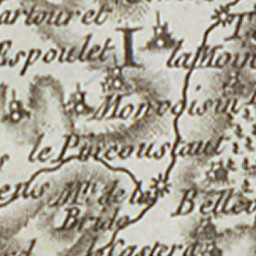 artouret
Espoulet I la Moin
Monvoisin
le Pincoustaut
ens Mn. de la Bride
Bellev
Castera